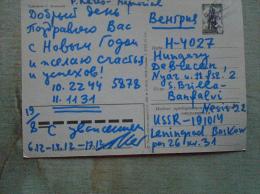 Добрый день!
Поздравляю Вас
с Новым Годом
и желаю счастья
и успехов!
10. 2244 5878
11. 1131
19/8 С уважением
Венгрия
H-4027
Hungary
Debrecen
Nyár u. 2
S. Brilla-
Banfalvi
USSR-191014
Leningrad
per 26 kv. 31